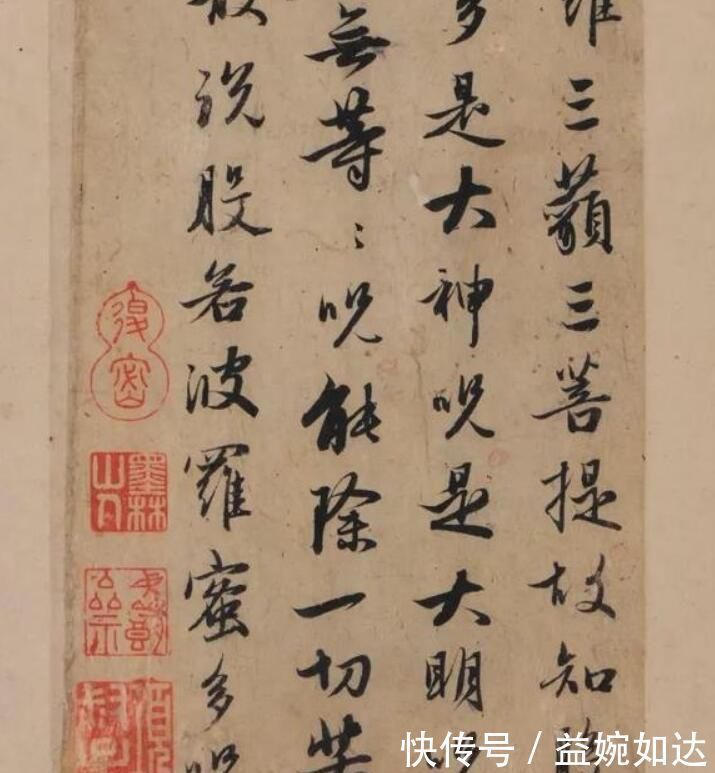 三藐三菩提故知
多是大神呪是大明呪
無等〻呪能除一切
故説般若波羅蜜多呪
墨林山人
快传号 / 益婉如达